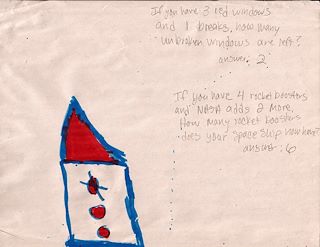 If you have 3 red windows
and 1 breaks, how many
unbroken windows are left?
answer 2
If you have 4 rocket boosters
and NASA adds 2 more,
How many rocket boosters
does your space ship now have?
answer: 6